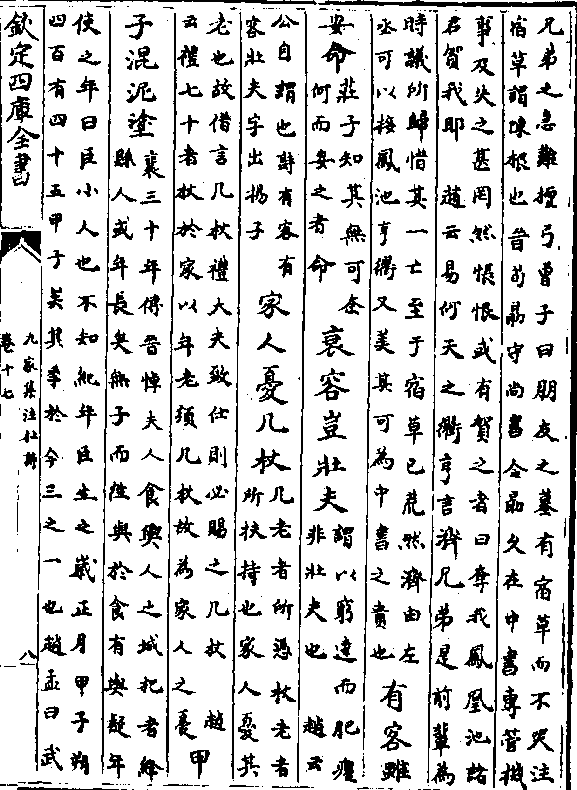 兄弟之急難檀弓曾子曰朋友之墓有宿草而不哭注
宿草謂陳根也晉荀勗守尚書令勗久在中書專管機
事及失之甚罔然悵恨或有賀之者曰奪我鳳凰池諸
君賀我耶 趙云易何天之衢亨言濟兄弟是前輩為
時議所歸惜其一亡至于宿草已荒然濟由左
丞可以接鳳池亨衢又美其可為中書之貴也
有客雖
安命
莊子知其無可奈
何而安之者命
衰容豈壯夫
謂以窮達而肥瘦
非壯夫也 趙云
公自謂也詩有客有
客壯夫字出揚子
家人憂几杖
几老者所憑杖老者
所扶持也家人憂其
老也故借言几杖禮大夫致仕則必賜之几杖 趙
云禮七十者杖於家以年老須几杖故為家人之憂
甲
子混泥塗
襄三十年傳晉悼夫人食輿人之城杞者絳
縣人或年長矣無子而往與於食有與疑年
使之年曰臣小人也不知紀年臣生之歲正月甲子朔
四百有四十五甲子矣其季於今三之一也趙孟曰武
欽定四庫全書
九家集注杜詩
卷十七
八